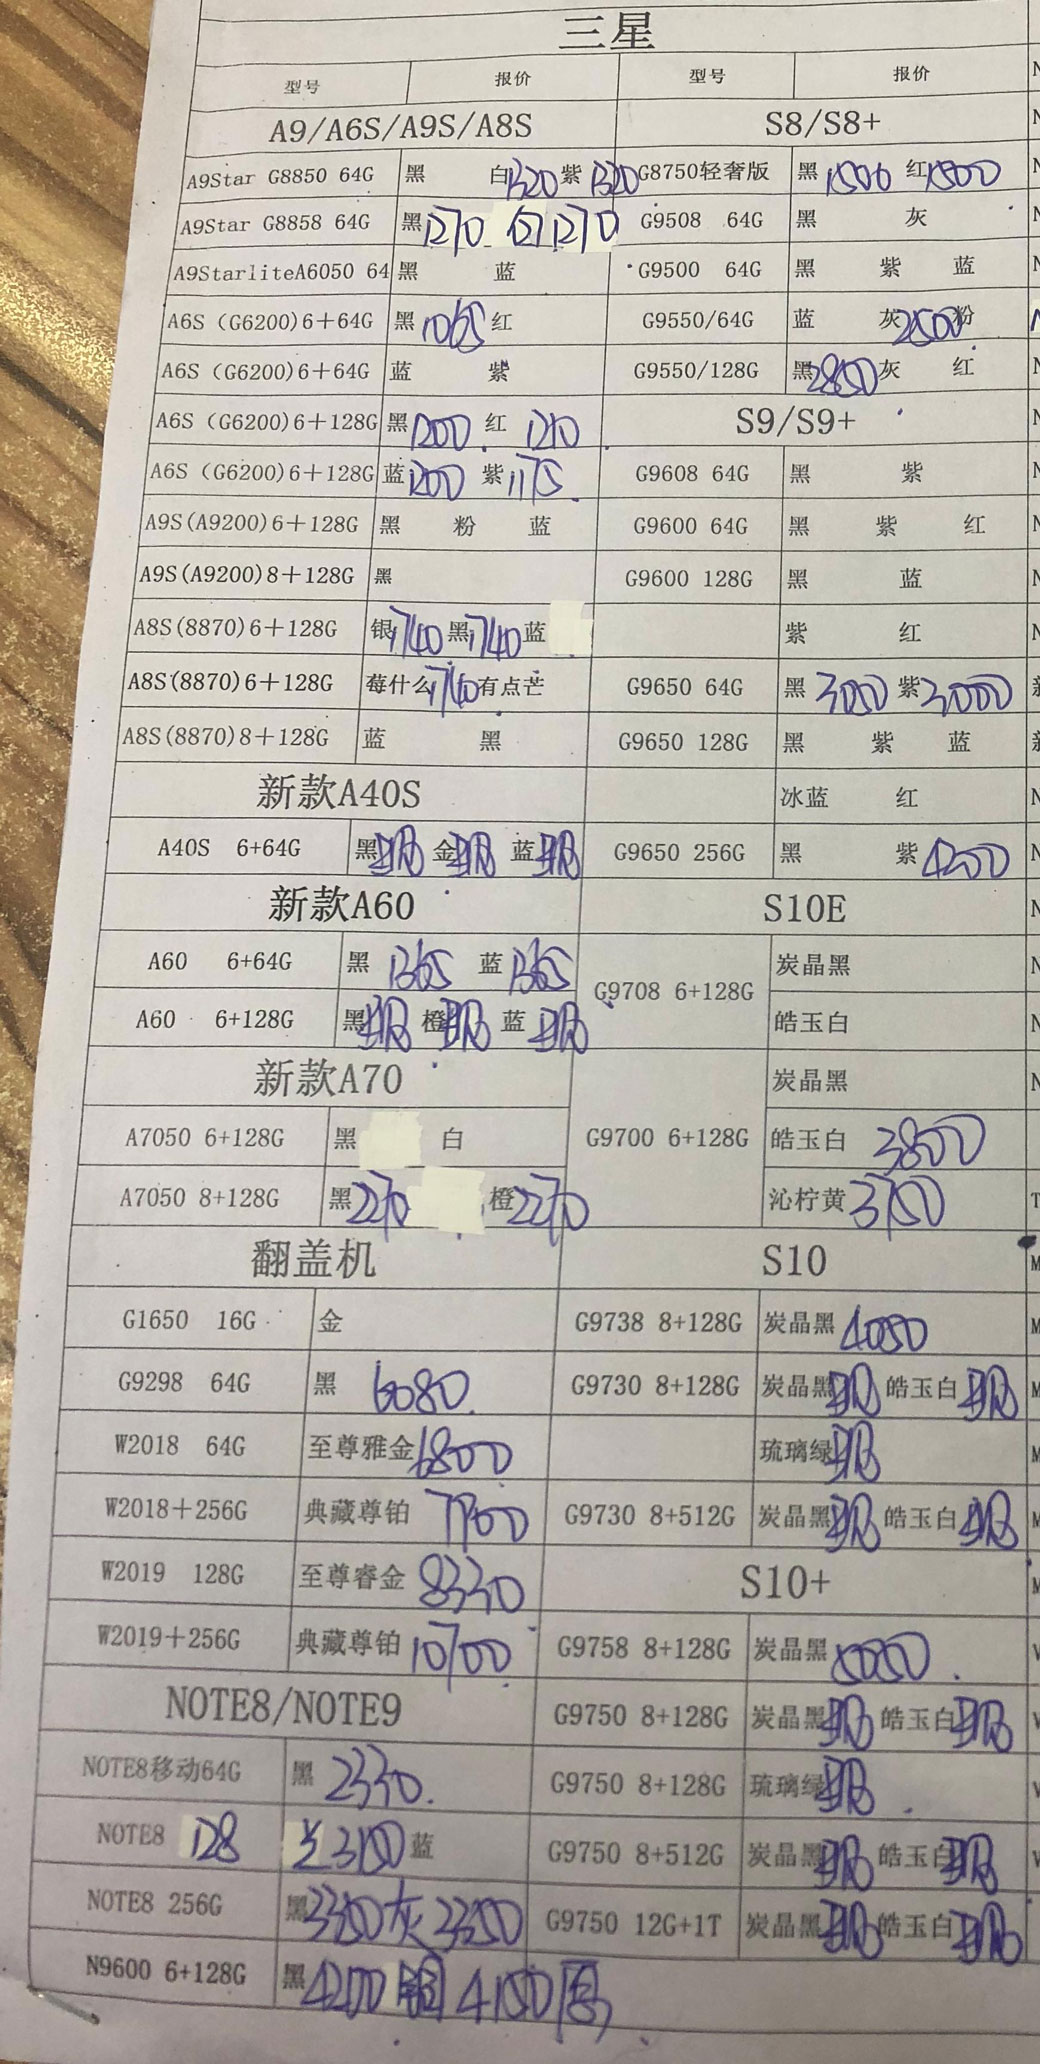 三星
型号 报价 型号 报价
A9/A6S/A9S/A8S S8/S8+
A9Star G8850 64G 黑 白1320 紫1320 G8750轻奢版 黑1500 红1500
A9Star G8858 64G 黑1270 白1270 G9508 64G 黑 灰
A9StarliteA6050 64 黑 蓝 G9500 64G 黑 紫 蓝
A6S（G6200)6＋64G 黑1065 红 G9550/64G 蓝 灰2500 粉
A6S（G6200)6＋64G 蓝 紫 G9550/128G 黑2850 灰 红
A6S（G6200)6＋128G 黑1200 红 1210 S9/S9+
A6S（G6200)6＋128G 蓝1200 紫1175 G9608 64G 黑 紫
A9S(A9200)6＋128G 黑 粉 蓝 G9600 64G 黑 紫 红
A9S(A9200)8＋128G 黑 G9600 128G 黑 蓝
A8S(8870)6＋128G 银1740 黑1740 蓝 紫 红
A8S(8870)6＋128G 莓什么1740 有点芒 G9650 64G 黑 3050 紫3000
A8S(8870)8＋128G 蓝 黑 G9650 128G 黑 紫 蓝
新款A40S 冰蓝 红
A40S 6+64G 黑 金 蓝 G9650 256G 黑 紫4200
新款A60 S10E
A60 6+64G 黑 1365 蓝 1365 G9708 6+128G 炭晶黑
A60 6+128G 黑 橙 蓝 皓玉白
新款A70 炭晶黑
A7050 6+128G 黑 白 G9700 6+128G 皓玉白 3800
A7050 8+128G 黑2270 橙2270 沁柠黄3750
翻盖机 S10
G1650 16G 金 G9738 8+128G 炭晶黑 4050
G9298 64G 黑 6080 G9730 8+128G 炭晶黑 皓玉白
W2018 64G 至尊雅金6800 琉璃绿
W2018＋256G 典藏尊铂 7900 G9730 8+512G 炭晶黑 皓玉白
W2019 128G 至尊睿金 8330 S10+
W2019＋256G 典藏尊铂 10700 G9758 8+128G 炭晶黑5050
NOTE8/NOTE9 G9750 8+128G 炭晶黑 皓玉白
NOTE8移动64G 黑 2330 G9750 8+128G 琉璃绿
NOTE8 128 3150 蓝 G9750 8+512G 炭晶黑 皓玉白
NOTE8 256G 黑3350 灰 3350 G9750 12G+1T 炭晶黑 皓玉白
N9600 6+128G 黑4200 铜 4150